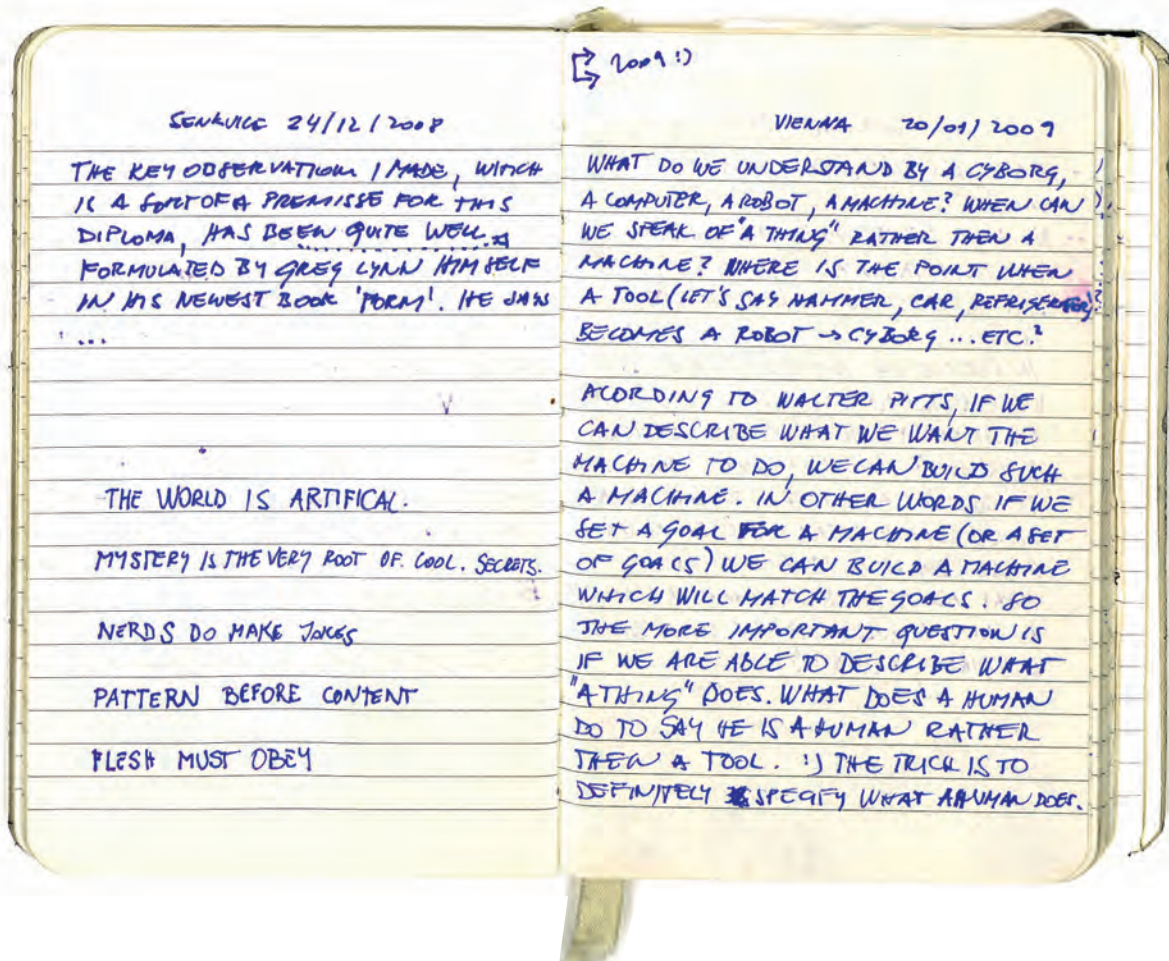 SENKVICE 24/12/2008
THE KEY OBSERVATION I MADE, WHICH
IS A SORT OF A PREMISSE FOR THIS
DIPLOMA, HAS BEEN QUITE WELL
FORMULATED BY GREG LYNN HIMSELF
IN HIS NEWEST BOOK 'FORM'. HE SAYS
...
THE WORLD IS ARTIFICAL.
MYSTERY IS THE VERY ROOT OF COOL. SECRETS.
NERDS DO MAKE JOKES
PATTERN BEFORE CONTENT
FLESH MUST OBEY
2009 :)
VIENNA 20/01/2009
WHAT DO WE UNDERSTAND BY A CYBORG,
A COMPUTER, A ROBOT, A MACHINE? WHEN CAN
WE SPEAK OF "A THING" RATHER THEN A
MACHINE? WHERE IS THE POINT WHEN
A TOOL (LET'S SAY HAMMER, CAR, REFRIGERATOR)
BECOMES A ROBOT → CYBORG ... ETC.?
ACORDING TO WALTER PITTS, IF WE
CAN DESCRIBE WHAT WE WANT THE
MACHINE TO DO, WE CAN BUILD SUCH
A MACHINE. IN OTHER WORDS IF WE
SET A GOAL FOR A MACHINE (OR A SET
OF GOALS) WE CAN BUILD A MACHINE
WHICH WILL MATCH THE GOALS. SO
THE MORE IMPORTANT QUESTION IS
IF WE ARE ABLE TO DESCRIBE WHAT
"A THING" DOES. WHAT DOES A HUMAN
DO TO SAY HE IS A HUMAN RATHER
THEN A TOOL. :) THE TRICK IS TO
DEFINITELY SPECIFY WHAT A HUMAN DOES.